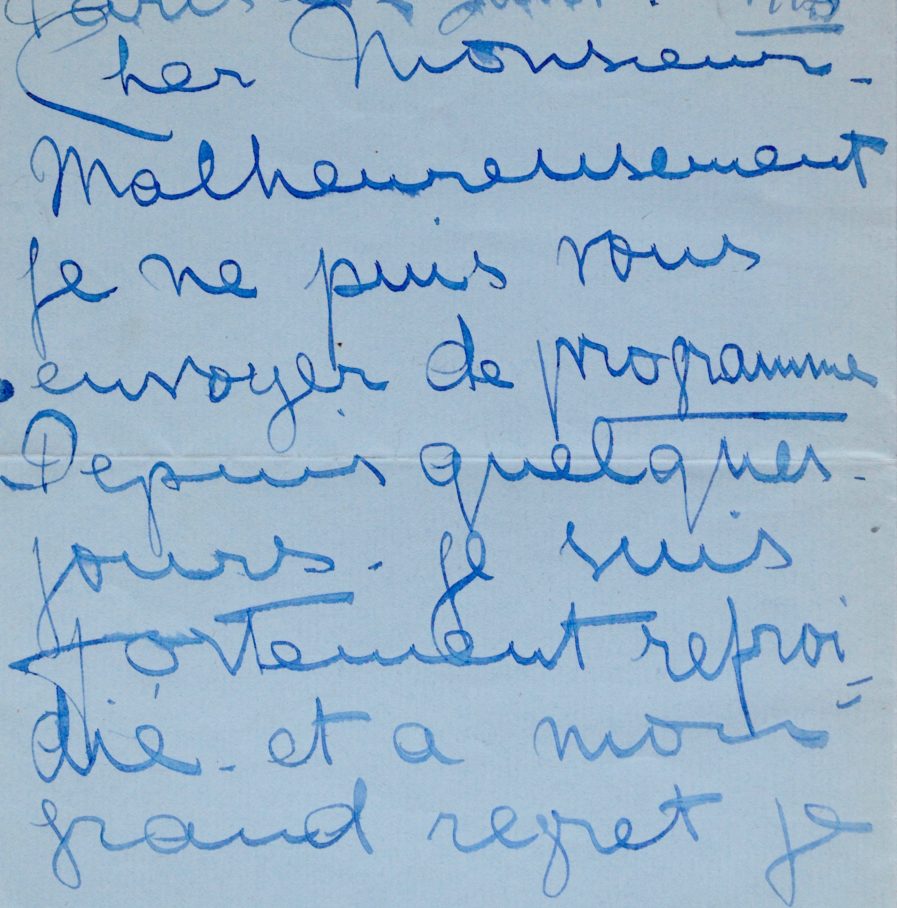 Paris
Cher Monsieur-
Malheureusement
je ne puis vous
envoyer de programme
Depuis quelques-
jours- je suis
fortement refroi
dié- et a mon
grand regret je